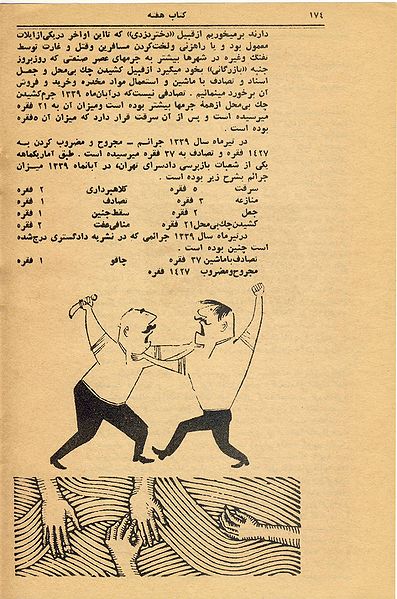 ۱۷٤ کتاب هفته
دارند برمیخوریم ازقبیل «دختردزدی» که تااین اواخر دریکی‌ازایلات
معمول بود و یا راهزنی ولخت‌کردن مسافرین وقتل و غارت توسط
تفنگ وغیره در شهرها بیشتر به جرمهای عصر صنعتی که روزبروز
جنبه «بازرگانی» بخود میگیرد ازقبیل کشیدن چك بی‌محل و جعــل
اسناد و تصادف با ماشین و استعمال مواد مخدره وخرید و فروش
آن برخورد مینمائیم . تصادفی نیست‌که درآبان‌ماه ۱۳۳۹ جرم‌کشیدن
چك بی‌محل ازهمهٔ جرمها بیشتر بوده است ومیزان آن به ۲۱ فقره
میرسیده است و پس از آن سرقت قرار دارد که میزان آن ۵فقره
بوده است .
در تیرماه سال ۱۳۳۹ جرائــم ـ مجروح و مضروب کردن بــه
۱٤۲۷ فقره و تصادف به ۳۷ فقره میرسیده است . طبق آماریکماهه
یکی از شعبات بازپرسی دادسرای تهران، در آبانماه ۱۳۳۹ میــزان
جرائم بشرح زیر بوده است .
سرقت ۵ فقره کلاهبرداری ۲ فقره
منازعه ۳ فقره تصادف ۱ فقره
جعل ۲ فقره سقط‌جنین ۱ فقره
کشیدن‌چك‌بی‌محل۲۱ فقره منافی‌عفت ۲ فقره
درتیرماه سال ۱۳۳۹ جرائمی که در نشریه دادگستری درج‌شده
است چنین بوده است .
تصادف‌باماشین ۳۷ فقره چاقو ۱ فقره
مجروح‌ومضروب ۱٤۲۷ فقره